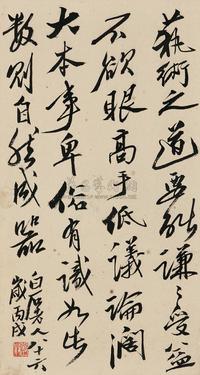 藝術之道要能謙々受益
不欲眼高手低議論闊
大本事卑俗有識如此
數則自然成器
白石老人八十六
歲丙戌